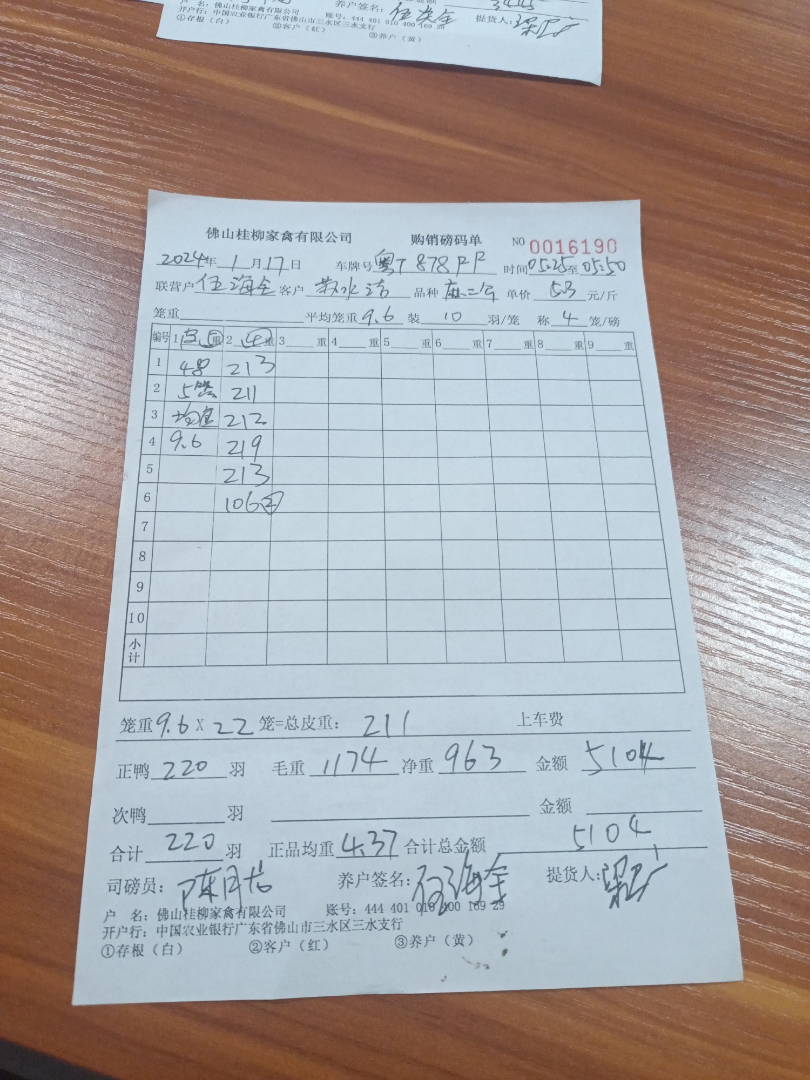 养户签名:
提货人:
户 名:佛山桂柳家禽有限公司 账号:444 401 010 400 169 29
开户行:中国农业银行广东省佛山市三水区三水支行
①存根(白) ②客户(红) ③养户(黄)
佛山桂柳家禽有限公司 购销磅码单 NO 0016190
2024年 1月17日 车牌号 粤T 878FF 时间05:25至05:50
联营户 伍海全 客户 散水清 品种 麻二公 单价 5.3 元/斤
笼重 平均笼重 9.6 装 10 羽/笼 称 4 笼/磅
编号 1 重 2 ④重 3 重 4 重 5 重 6 重 7 重 8 重 9 重
1 48 213
2 5笼 211
3 均重 212
4 9.6 219
5 213
6 106②
7
8
9
10
小计
笼重 9.6 X 22 笼=总皮重: 211 上车费
正鸭 220 羽 毛重 1174 净重 963 金额 5104
次鸭 羽 金额
合计 220 羽 正品均重 4.37 合计总金额 5104
司磅员: 养户签名: 伍海全 提货人:
户 名:佛山桂柳家禽有限公司 账号:444 401 010 400 169 29
开户行:中国农业银行广东省佛山市三水区三水支行
①存根(白) ②客户(红) ③养户(黄)